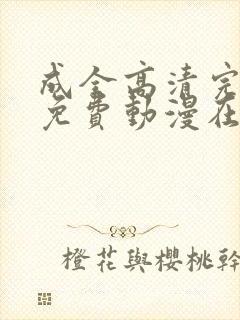 成全高清完
免費動漫在
橙花與櫻桃幹